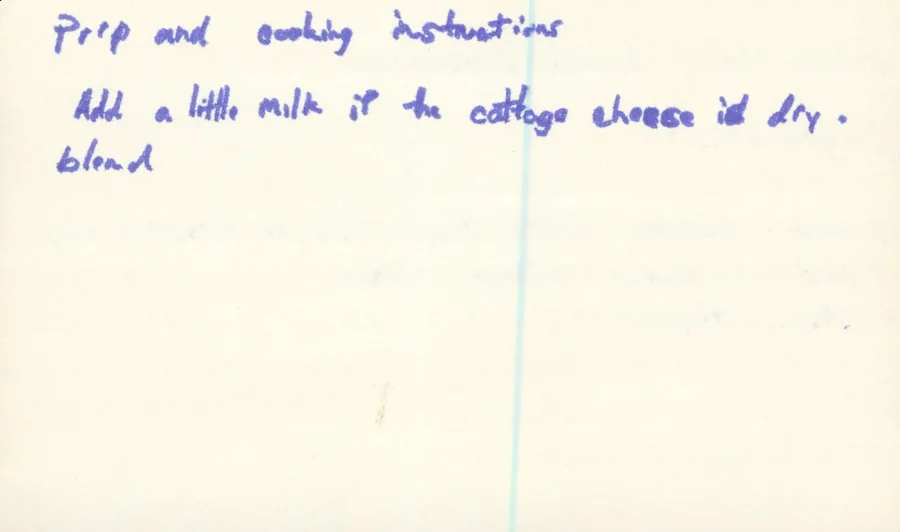 Prep and cooking instructions
Add a little milk if the cottage cheese is dry.
blend